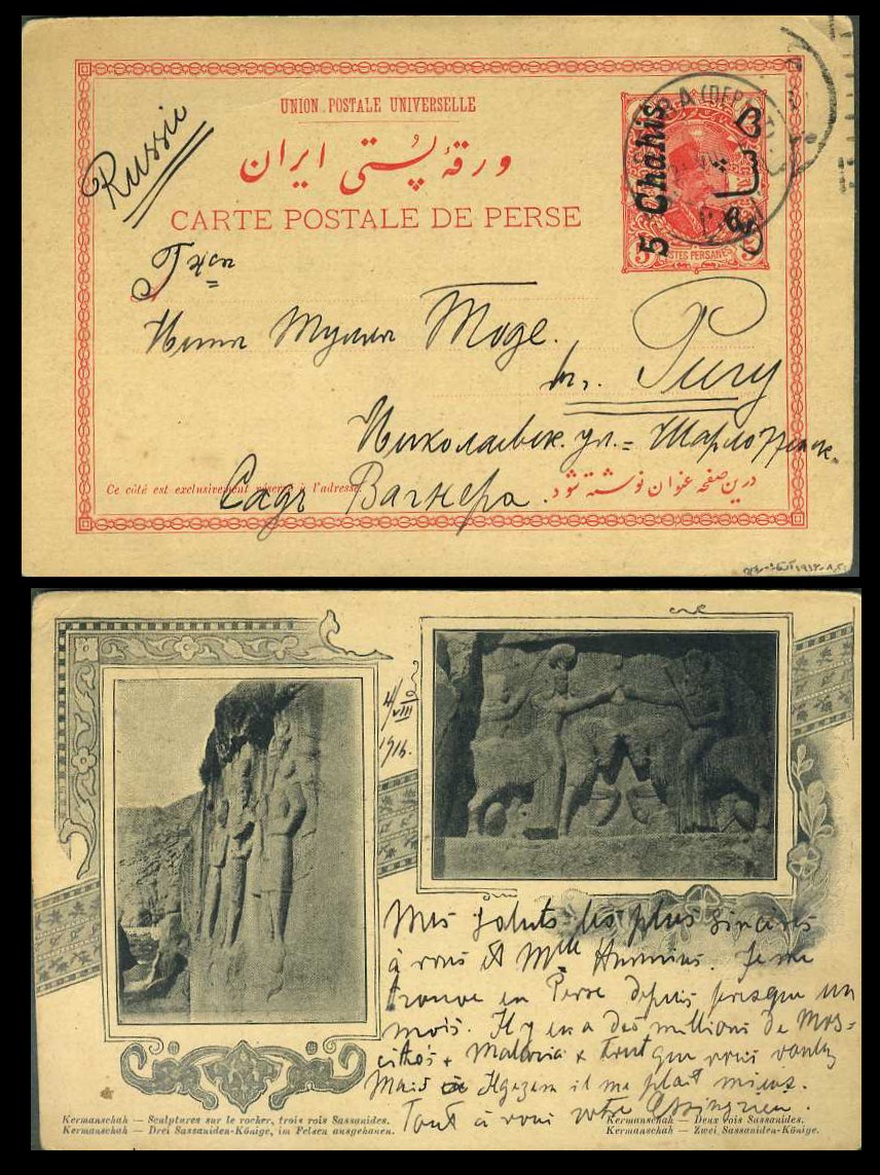 UNION POSTALE UNIVERSELLE
ورقهٔ پُستی ایران
CARTE POSTALE DE PERSE
Russie
5 Chahis
5 POSTES PERSANES 5
Нинн Тоде.
Ригу
Николаевск. ул. =
Садъ Вагнера.
Ce côté est exclusivement réservé à l'adresse.
درین صفحه عنوان نوشته شود
4/VIII
1916.
Mes saluts les plus sincères
à vous et Mlle . Je me
trouve en Perse depuis presque un
mois. Il y en a des millions de Mos-
+ Malaria & tout que vous voulez
Mais il me plait mieux.
Tout à vous votre
Kermanschah — Sculptures sur le rocher, trois rois Sassanides.
Kermanschah — Drei Sassaniden-Könige, im Felsen ausgehauen.
Kermanschah — Deux rois Sassanides.
Kermanschah — Zwei Sassaniden-Könige.